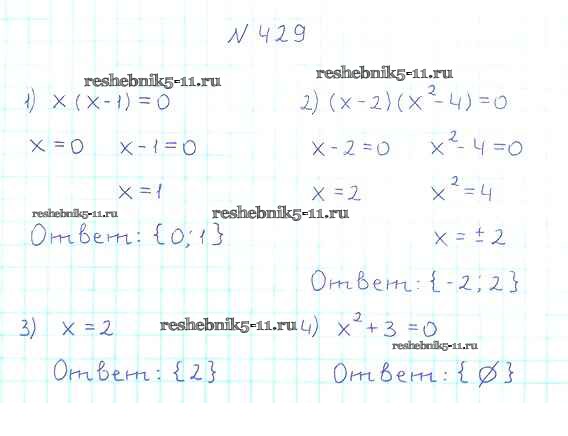 № 429
reshebnik5-11.ru
reshebnik5-11.ru
1) x (x-1) = 0
2) (x-2)(x²-4) = 0
x = 0 x-1 = 0
x-2 = 0 x²-4 = 0
x = 1
x = 2 x² = 4
reshebnik5-11.ru
reshebnik5-11.ru
Ответ: {0; 1}
x = ±2
Ответ: {-2; 2}
3) x = 2
reshebnik5-11.ru
4) x² + 3 = 0
reshebnik5-11.ru
Ответ: {2}
Ответ: {∅}